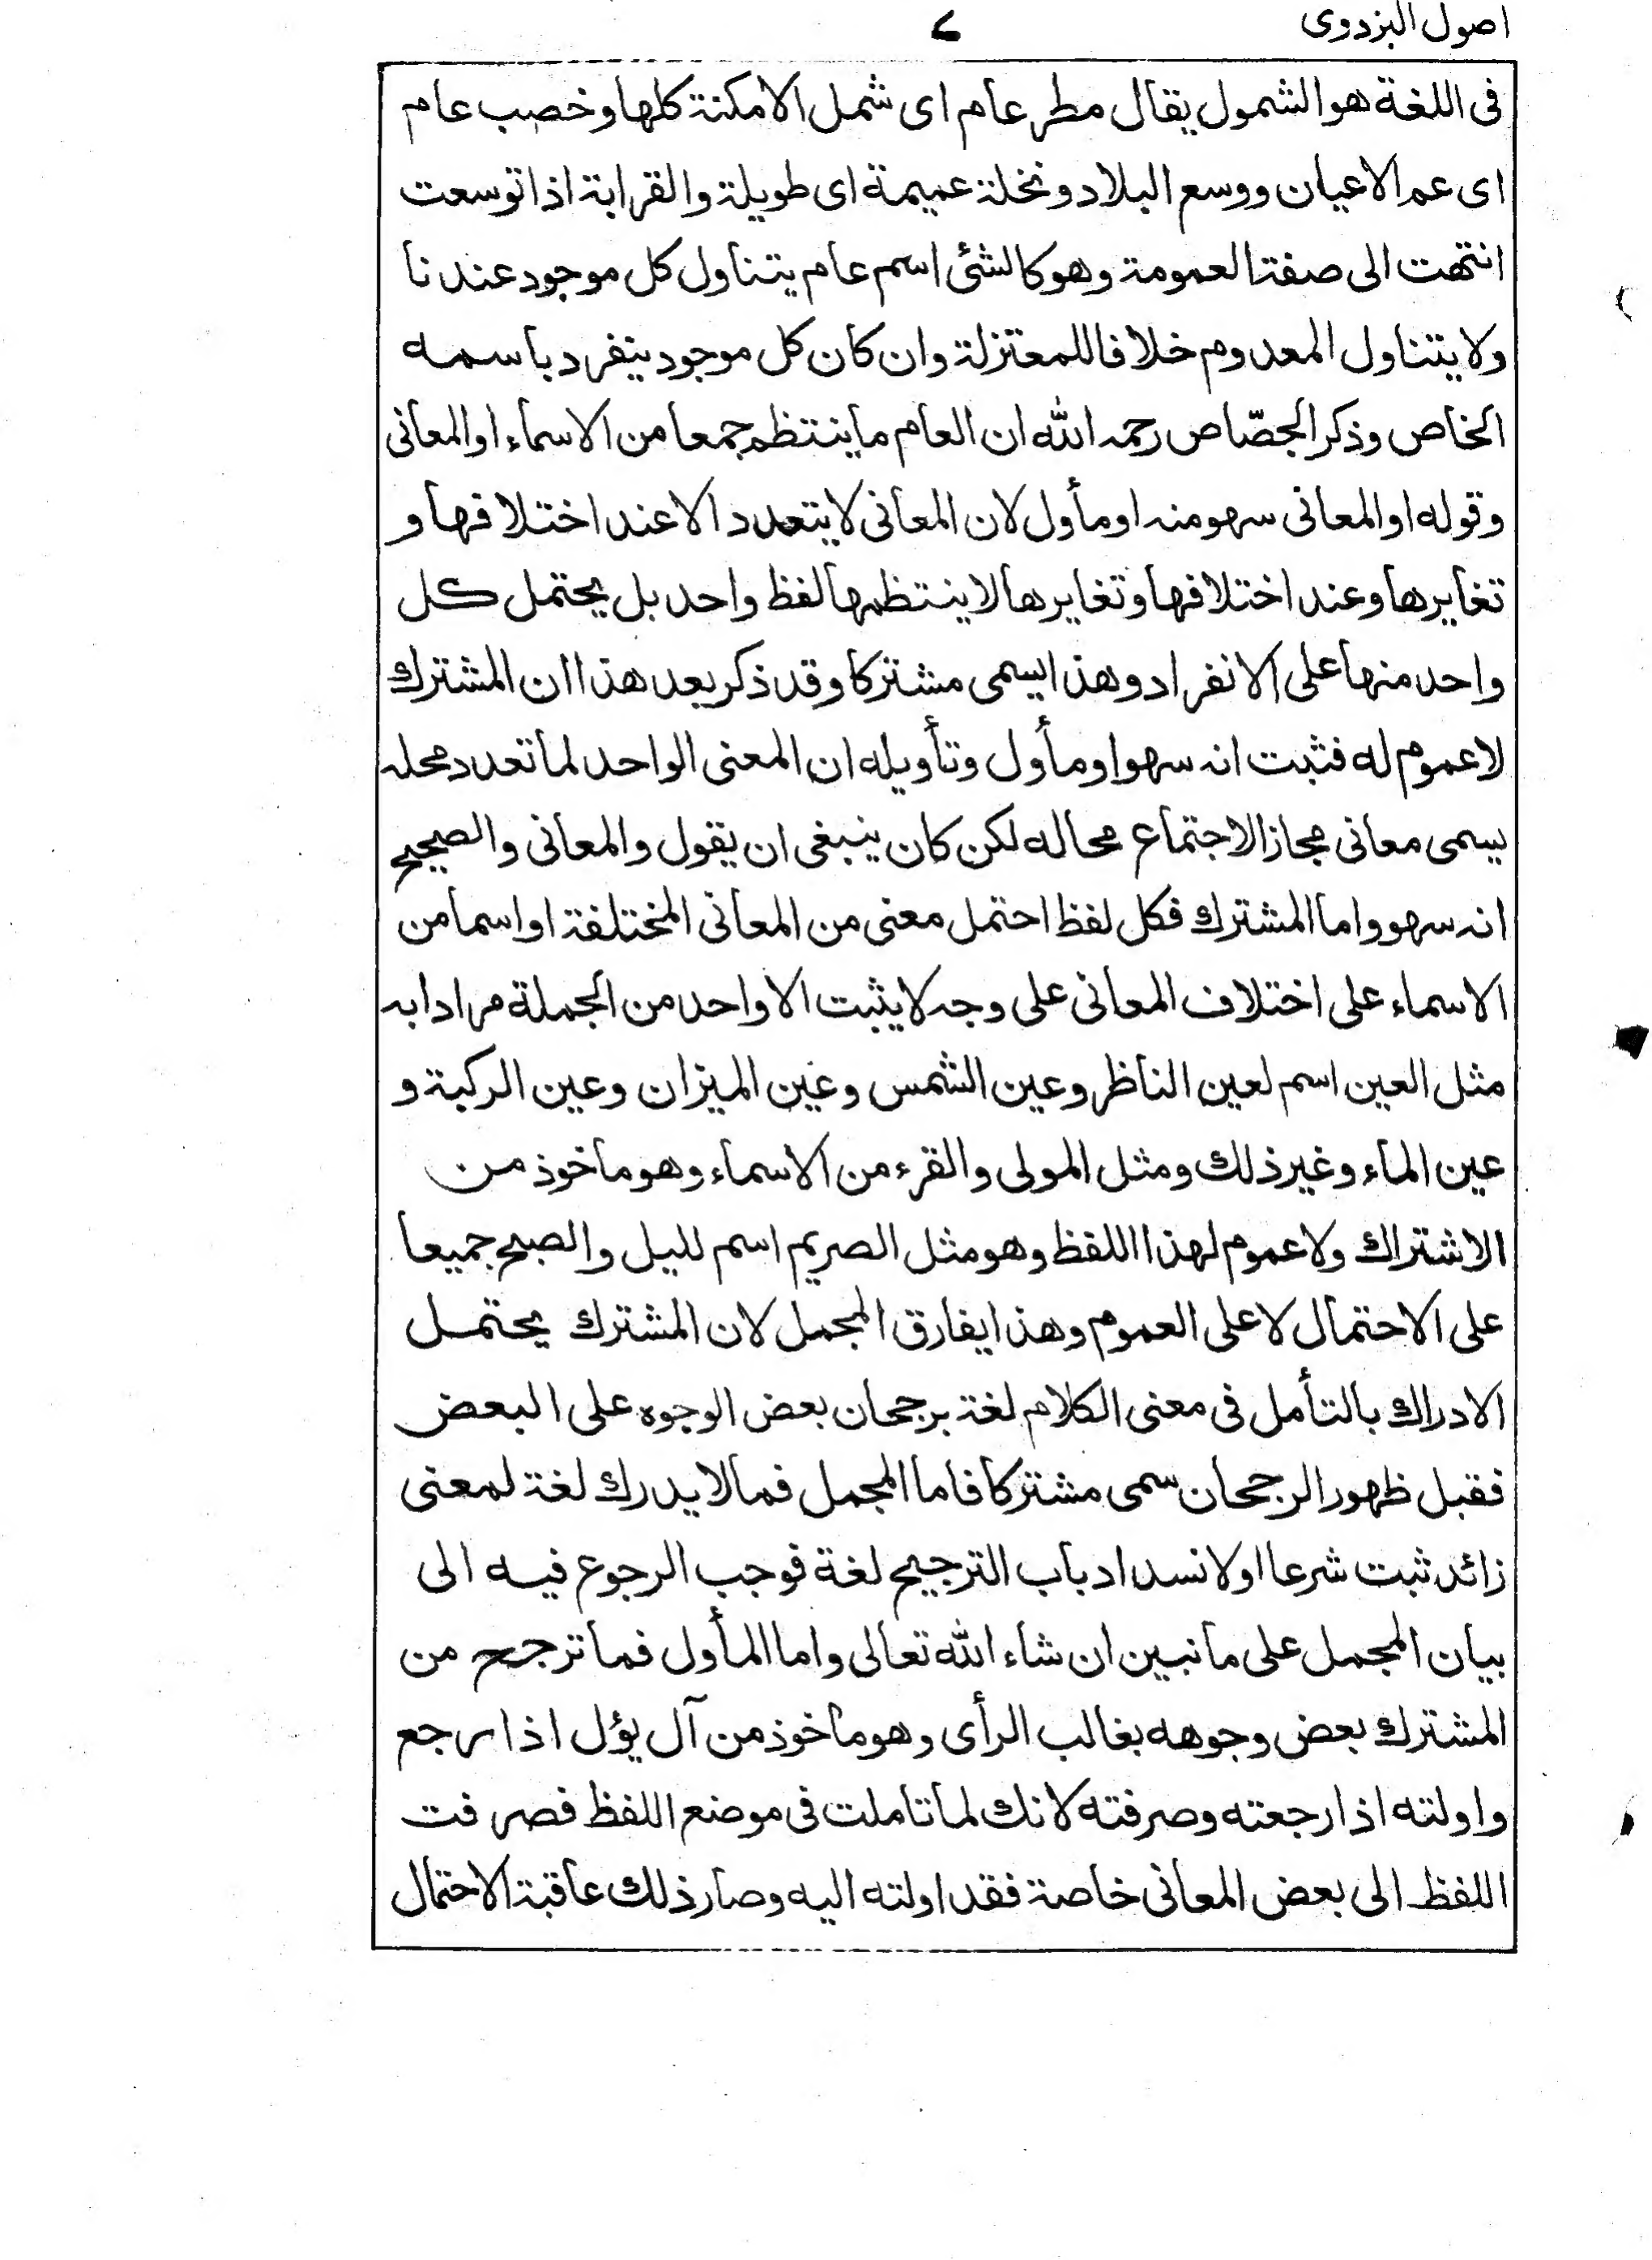 اصول البزدوى
۷
فى اللغة هو الشمول يقال مطر عام اى شمل الامكنة كلها وخصب عام
اى عم الاعيان ووسع البلاد ونخلة عميمة اى طويلة والقرابة اذا توسعت
انتهت الى صفة العمومة وهو كالشئ اسم عام يتناول كل موجود عندنا
ولا يتناول المعدوم خلافا للمعتزلة وان كان كل موجود ينفرد باسمه
الخاص وذكر الجصّاص رحمه الله ان العام ما ينتظم جمعا من الاسماء او المعانى
وقوله او المعانى سهو منه او مأول لان المعانى لا يتعدد الا عند اختلافها و
تغايرها وعند اختلافها وتغايرها لا ينتظمها لفظ واحد بل يحتمل كل
واحد منها على الانفراد وهذا يسمى مشتركا وقد ذكر بعد هذا ان المشترك
لا عموم له فثبت انه سهو او مأول وتأويله ان المعنى الواحد لما تعدد محله
يسمى معانى مجازا لاجتماع محاله لكن كان ينبغى ان يقول والمعانى والصحيح
انه سهو واما المشترك فكل لفظ احتمل معنى من المعانى المختلفة او اسما من
الاسماء على اختلاف المعانى على وجه لا يثبت الا واحد من الجملة مرادا به
مثل العين اسم لعين الناظر وعين الشمس وغين الميزان وعين الركبة و
عين الماء وغير ذلك ومثل المولى والقرء من الاسماء وهو ماخوذ من
الاشتراك ولا عموم لهذا اللفظ وهو مثل الصريم اسم لليل والصبح جميعا
على الاحتمال لا على العموم وهذا يفارق المجمل لان المشترك يحتمل
الادراك بالتأمل فى معنى الكلام لغة برجحان بعض الوجوه على البعض
فقبل ظهور الرجحان سمى مشتركا فاما المجمل فما لا يدرك لغة لمعنى
زائد ثبت شرعا او لانسداد باب الترجيح لغة فوجب الرجوع فيه الى
بيان المجمل على ما نبين ان شاء الله تعالى واما المأول فما ترجح من
المشترك بعض وجوهه بغالب الرأى وهو ماخوذ من آل يؤل اذا رجع
واولته اذا رجعته وصرفته لانك لما تاملت فى موضع اللفظ فصرفت
اللفظ الى بعض المعانى خاصة فقد اولته اليه وصار ذلك عاقبة الاحتمال